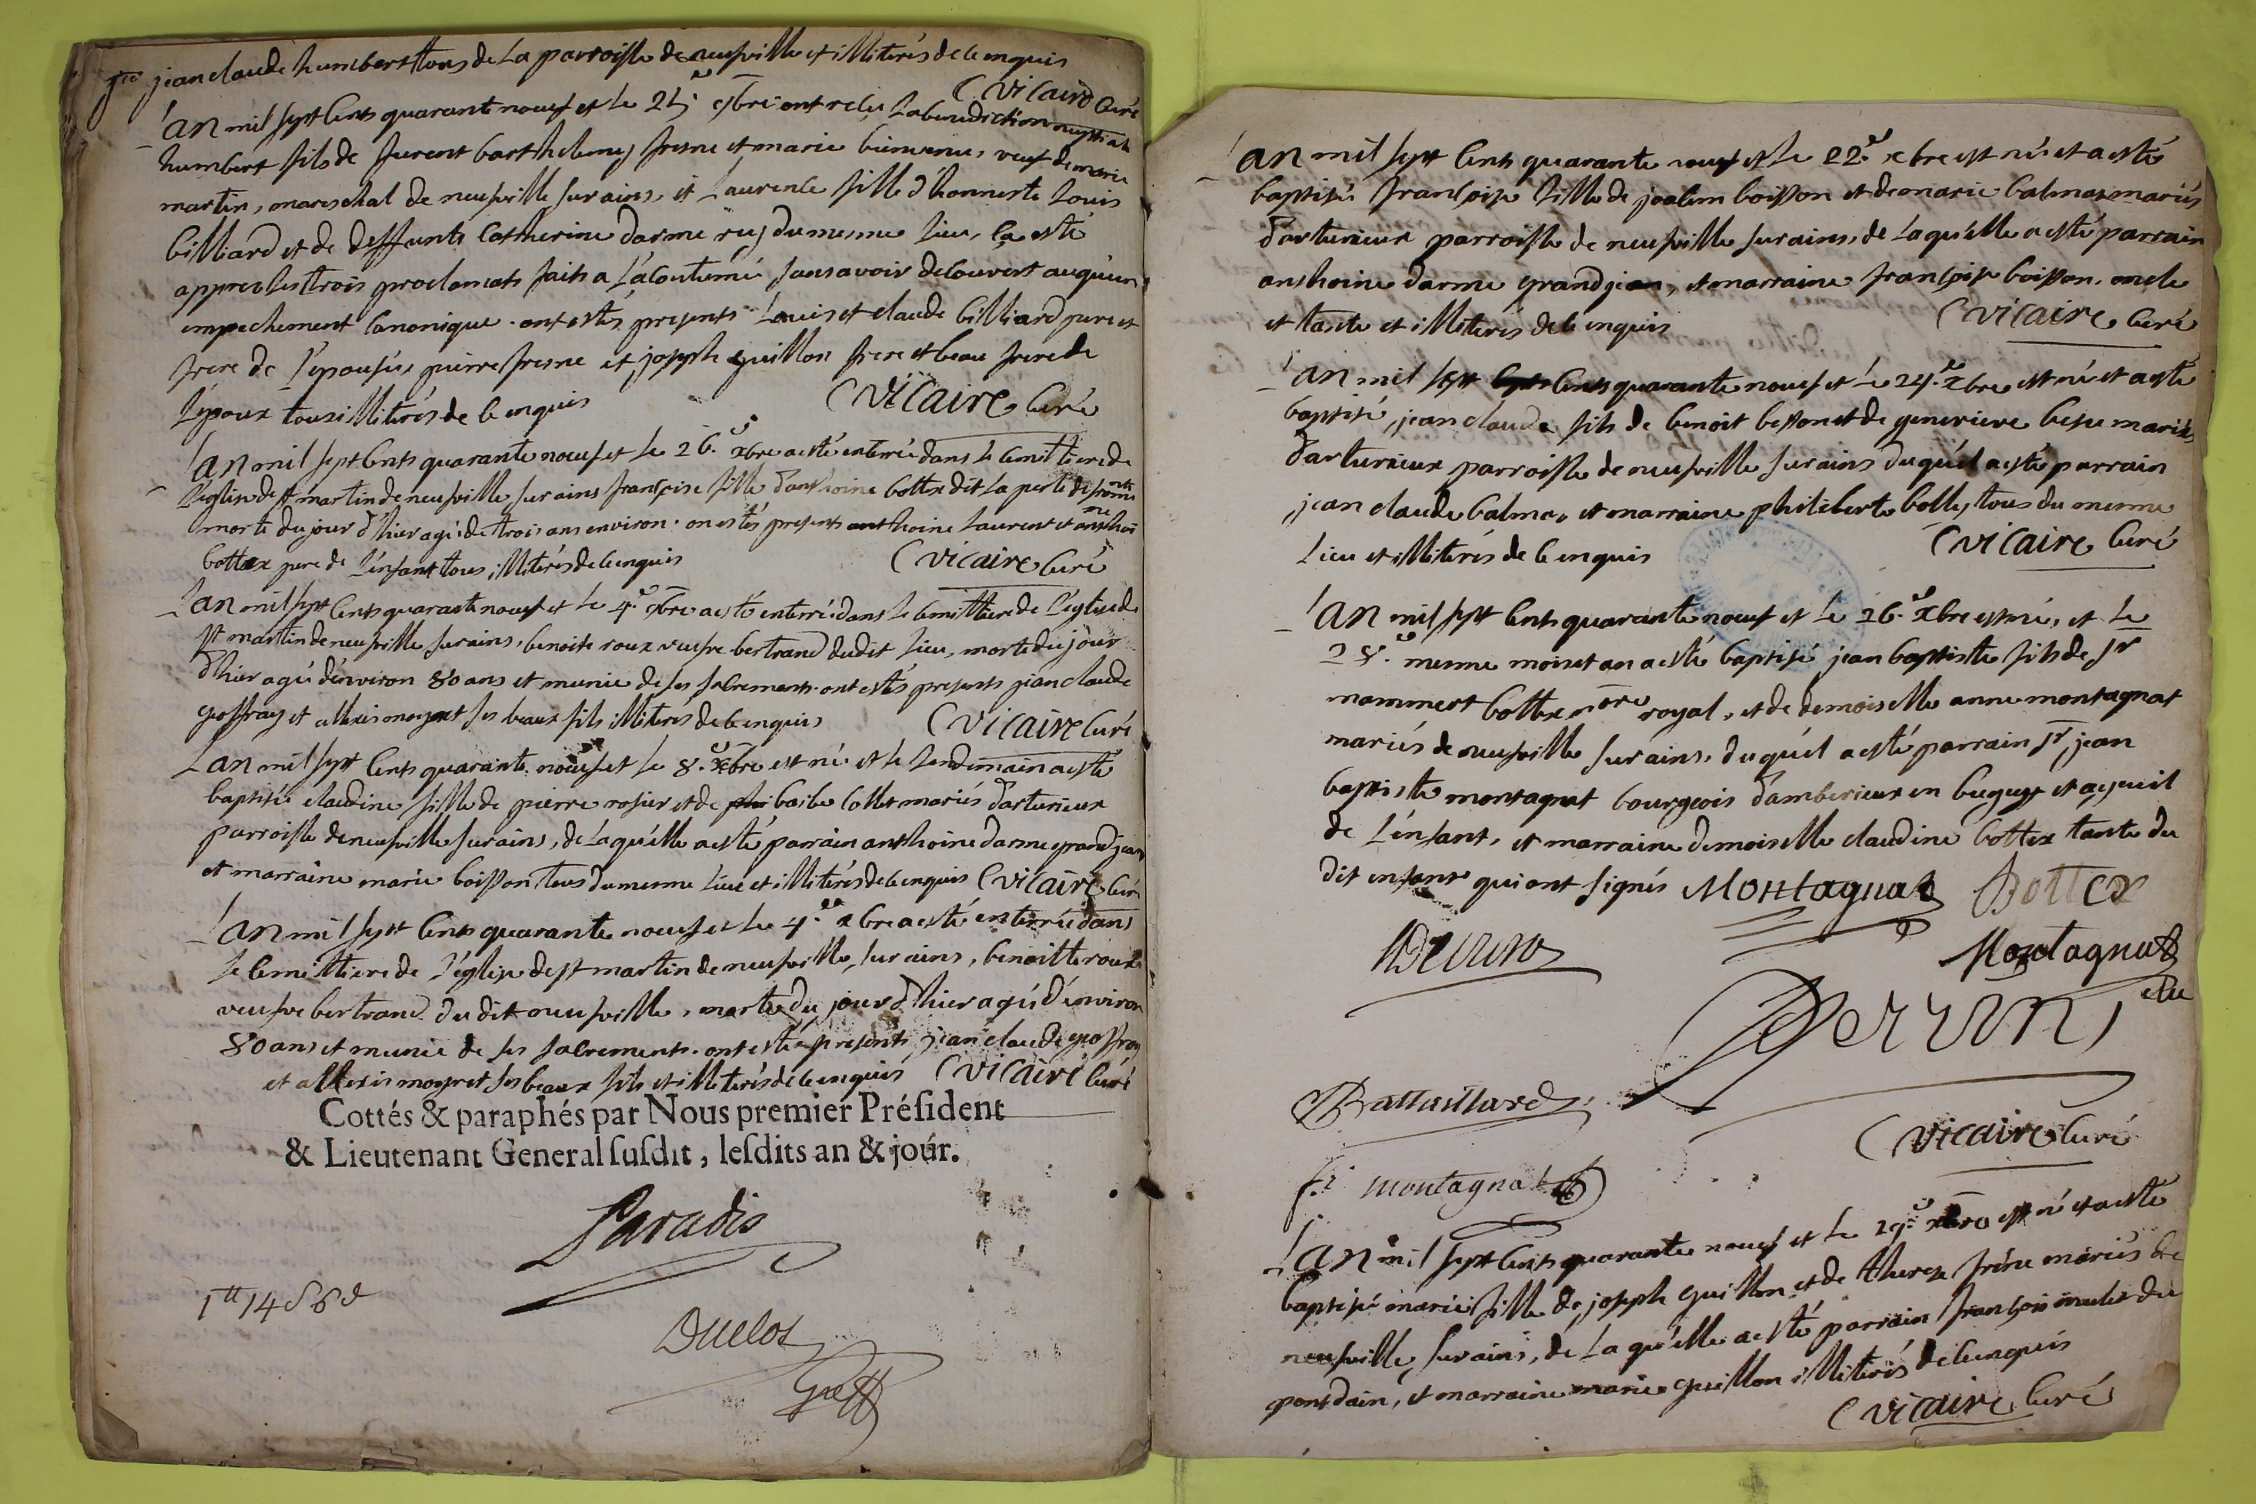 jean claude humbert tous de la parroisse de neufville et illiterés de ce enquis
C Vicaire Curé
L'an mil sept cents quarante noeuf et le 25e 9bre ont recu la benediction nuptiale
humbert fils de furent barthelemy fresne et marie bienvenu, veuf de marie
martin, mareschal de neufville sur ains, et Laurence fille d'honneste Louis
billiard et de deffunte Catherine darme du mesme lieu, ce esté
apprer les trois proclamats faits a l'acoutumé sans avoir decouvert auqu'un
empechement Canonique. ont estés presents Louis et claude billiard pere et
frere de l'epousée, pierre fresne et joseph guillon frere et beau frere de
l'epoux tous illiterés de ce enquis C Vicaire Curé
L'an mil sept cents quarante noeuf et le 26e xbre a esté enterrée dans le cemittiere de
l'eglise de st martin de neufville sur ains françoise fille d'anthoine bottex dit la perle
morte du jour d'hier agée de trois ans environ. on estés presents anthoine Laurent et anthoine
bottex pere de l'enfant tous illiterés de ce enquis C Vicaire Curé
L'an mil sept cents quarante noeuf et le 4e xbre a esté enterrée dans le cemittiere de l'eglise de
st martin de neufville sur ains, benoite roux veufve bertrand dudit lieu, morte du jour
d'hier agée d'environ 80 ans et munie de ses sacrements. ont estés presents jean claude
geoffray et allexis moyret ses beaux fils illiterés de ce enquis C Vicaire Curé
L'an mil sept cents quarante noeuf et le 8e xbre est née et le lendemain a esté
baptisée claudine fille de pierre rosier et de barbe Collet mariés d'arturieux
parroisse de neufville sur ains, de laquelle a esté parrain anthoine darme grand jean
et marraine marie boisson tous du mesme lieu et illiterés de ce enquis C Vicaire Curé
L'an mil sept cents quarante noeuf et le 4e xbre a esté enterrée dans
le cemittiere de l'eglise de st martin de neufville sur ains, benoitte roux
veufve bertrand du dit neufville, morte du jour d'hier agée d'environ
80 ans et munie de ses sacrements. ont esté presents jean claude geoffray
et allexis moyret ses beaux fils et illiterés de ce enquis C Vicaire Curé
Cottés & paraphés par Nous premier Préſident
& Lieutenant General ſuſdit, leſdits an & jour.
Paradis
1tt 14 s 6 d
Duclos
Greff
L'an mil sept cents quarante noeuf et le 22e xbre est née et a esté
baptisée françoise fille de joachim boisson et de marie balmas mariés
d'arturieux parroisse de neufville sur ains, de laquelle a esté parrain
anthoine darme grand jean, et marraine françoise boisson, oncle
et tante et illiterés de ce enquis C Vicaire Curé
L'an mil sept cents quarante noeuf et le 24e xbre est né et a esté
baptisé, jean claude fils de benoit besson et de genevieve besu mariés
d'arturieux parroisse de neufville sur ains duquel a esté parrain
jean claude balmas et marraine philiberte bolley tous du mesme
lieu et illiterés de ce enquis C Vicaire Curé
L'an mil sept cents quarante noeuf et le 26e xbre est né, et le
28e mesme mois et an a esté baptisé jean baptiste fils de sr
mammert bottex nore royal, et de demoiselle anne montagnat
mariés de neufville sur ains, duquel a esté parrain sr jean
baptiste montagnat bourgeois d'amberieux en bugey et ayeuil
de l'enfant, et marraine demoiselle claudine bottex tante du
dit enfant qui ont signés Montagnat Bottex
Montagnat
Perron
Battaillard
C Vicaire Curé
montagnat
L'an mil sept cents quarante noeuf et le 29e xbre est né et a esté
baptisé marie fille de joseph guillon et de therese frène mariés de
neufville sur ains, de laquelle a esté parrain françois mulet du
pontdain, et marraine marie guillon illiterés de ce enquis
C Vicaire Curé